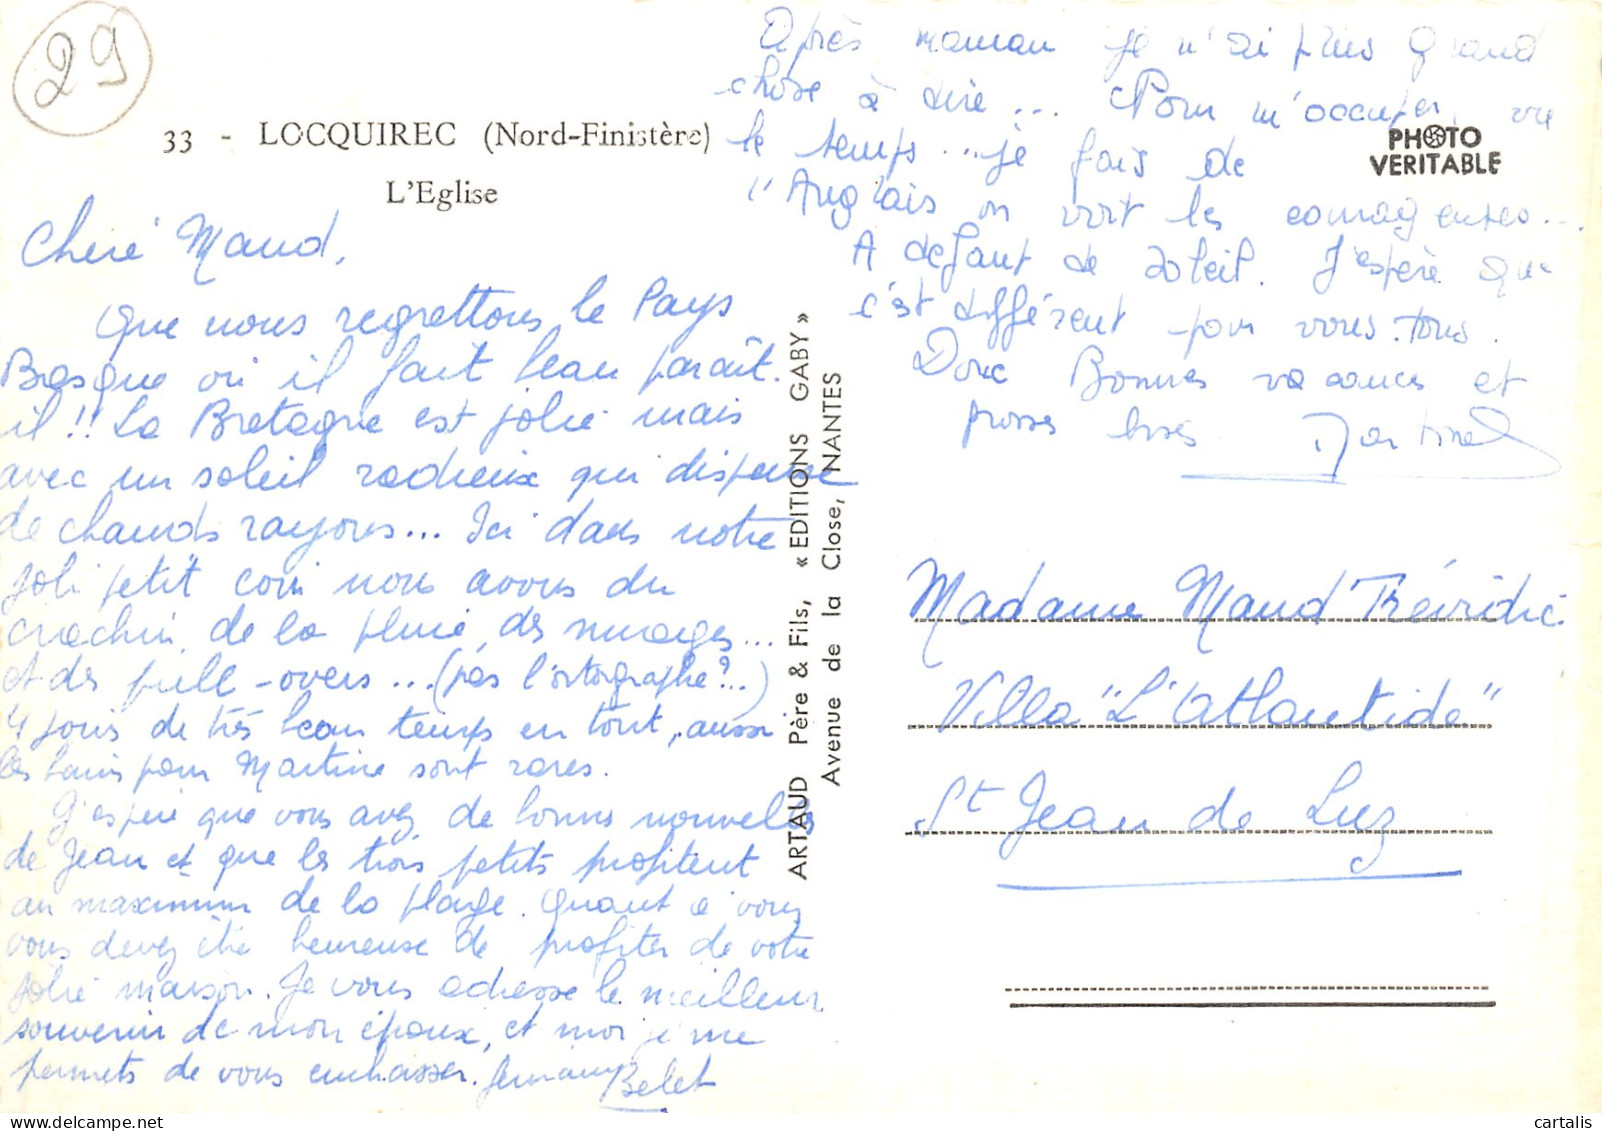 29
33 - LOCQUIREC (Nord-Finistère)
L'Eglise
Chère Maud,
Que nous regrettons le Pays
Basque où il fait beau paraît.
il !! La Bretagne est jolie mais
avec un soleil radieux qui dispense
de chauds rayons... Ici dans notre
joli petit coin nous avons du
crachin, de la pluie, des nuages...
et des pull-overs ... (pas l'ortographe?...)
4 jours de très beau temps en tout, aussi
les bains pour Martine sont rares.
J'espère que vous avez de bonnes nouvelles
de Jean et que les trois petits profitent
au maximum de la plage. Quant à vous
vous devez être heureuse de profiter de votre
jolie maison. Je vous adresse le meilleur
souvenir de mon époux, et moi je me
permets de vous embrasser. Belet
Après maman je n'ai plus grand
chose à dire ... Pour m'occuper, vu
le temps ... je fais de
l'Anglais on voit les
A défaut de soleil. J'espère que
c'est différent pour vous tous.
Donc Bonnes vacances et
grosses bises Martine
PHOTO
VERITABLE
ARTAUD Père & Fils, « EDITIONS GABY »
Avenue de la Close, NANTES
Madame Maud
Villa "L'Atlantide"
St Jean de Luz
cartalis